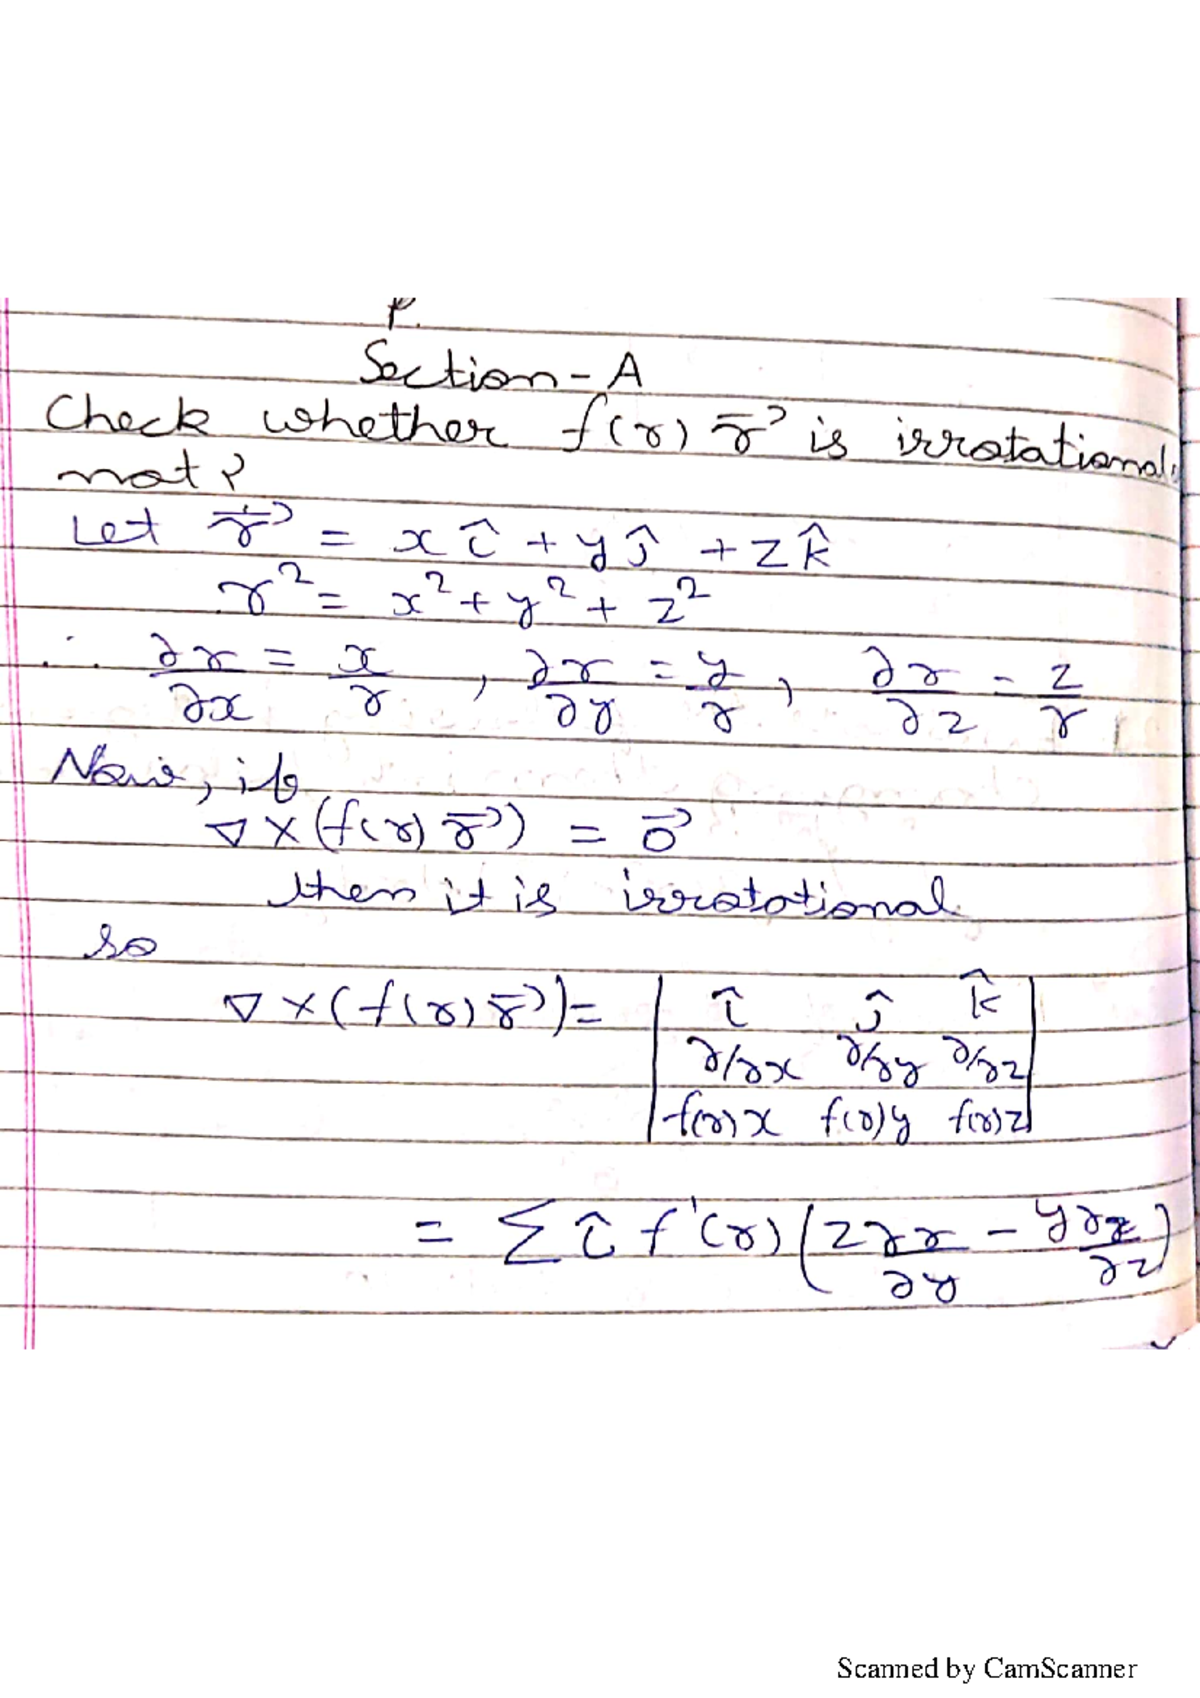 Section - A
Check whether f(r) r⃗ is irrotational
not?
Let r⃗ = xî + yĵ + zk̂
r² = x² + y² + z²
∴ ∂r/∂x = x/r , ∂r/∂y = y/r , ∂r/∂z = z/r
Now, if
∇×(f(r) r⃗) = 0⃗
then it is irrotational
so
∇×(f(r) r⃗) = | î ĵ k̂ |
∂/∂x ∂/∂y ∂/∂z
f(r)x f(r)y f(r)z
= Σ î f'(r) (z∂r/∂y - y∂r/∂z)
Scanned by CamScanner